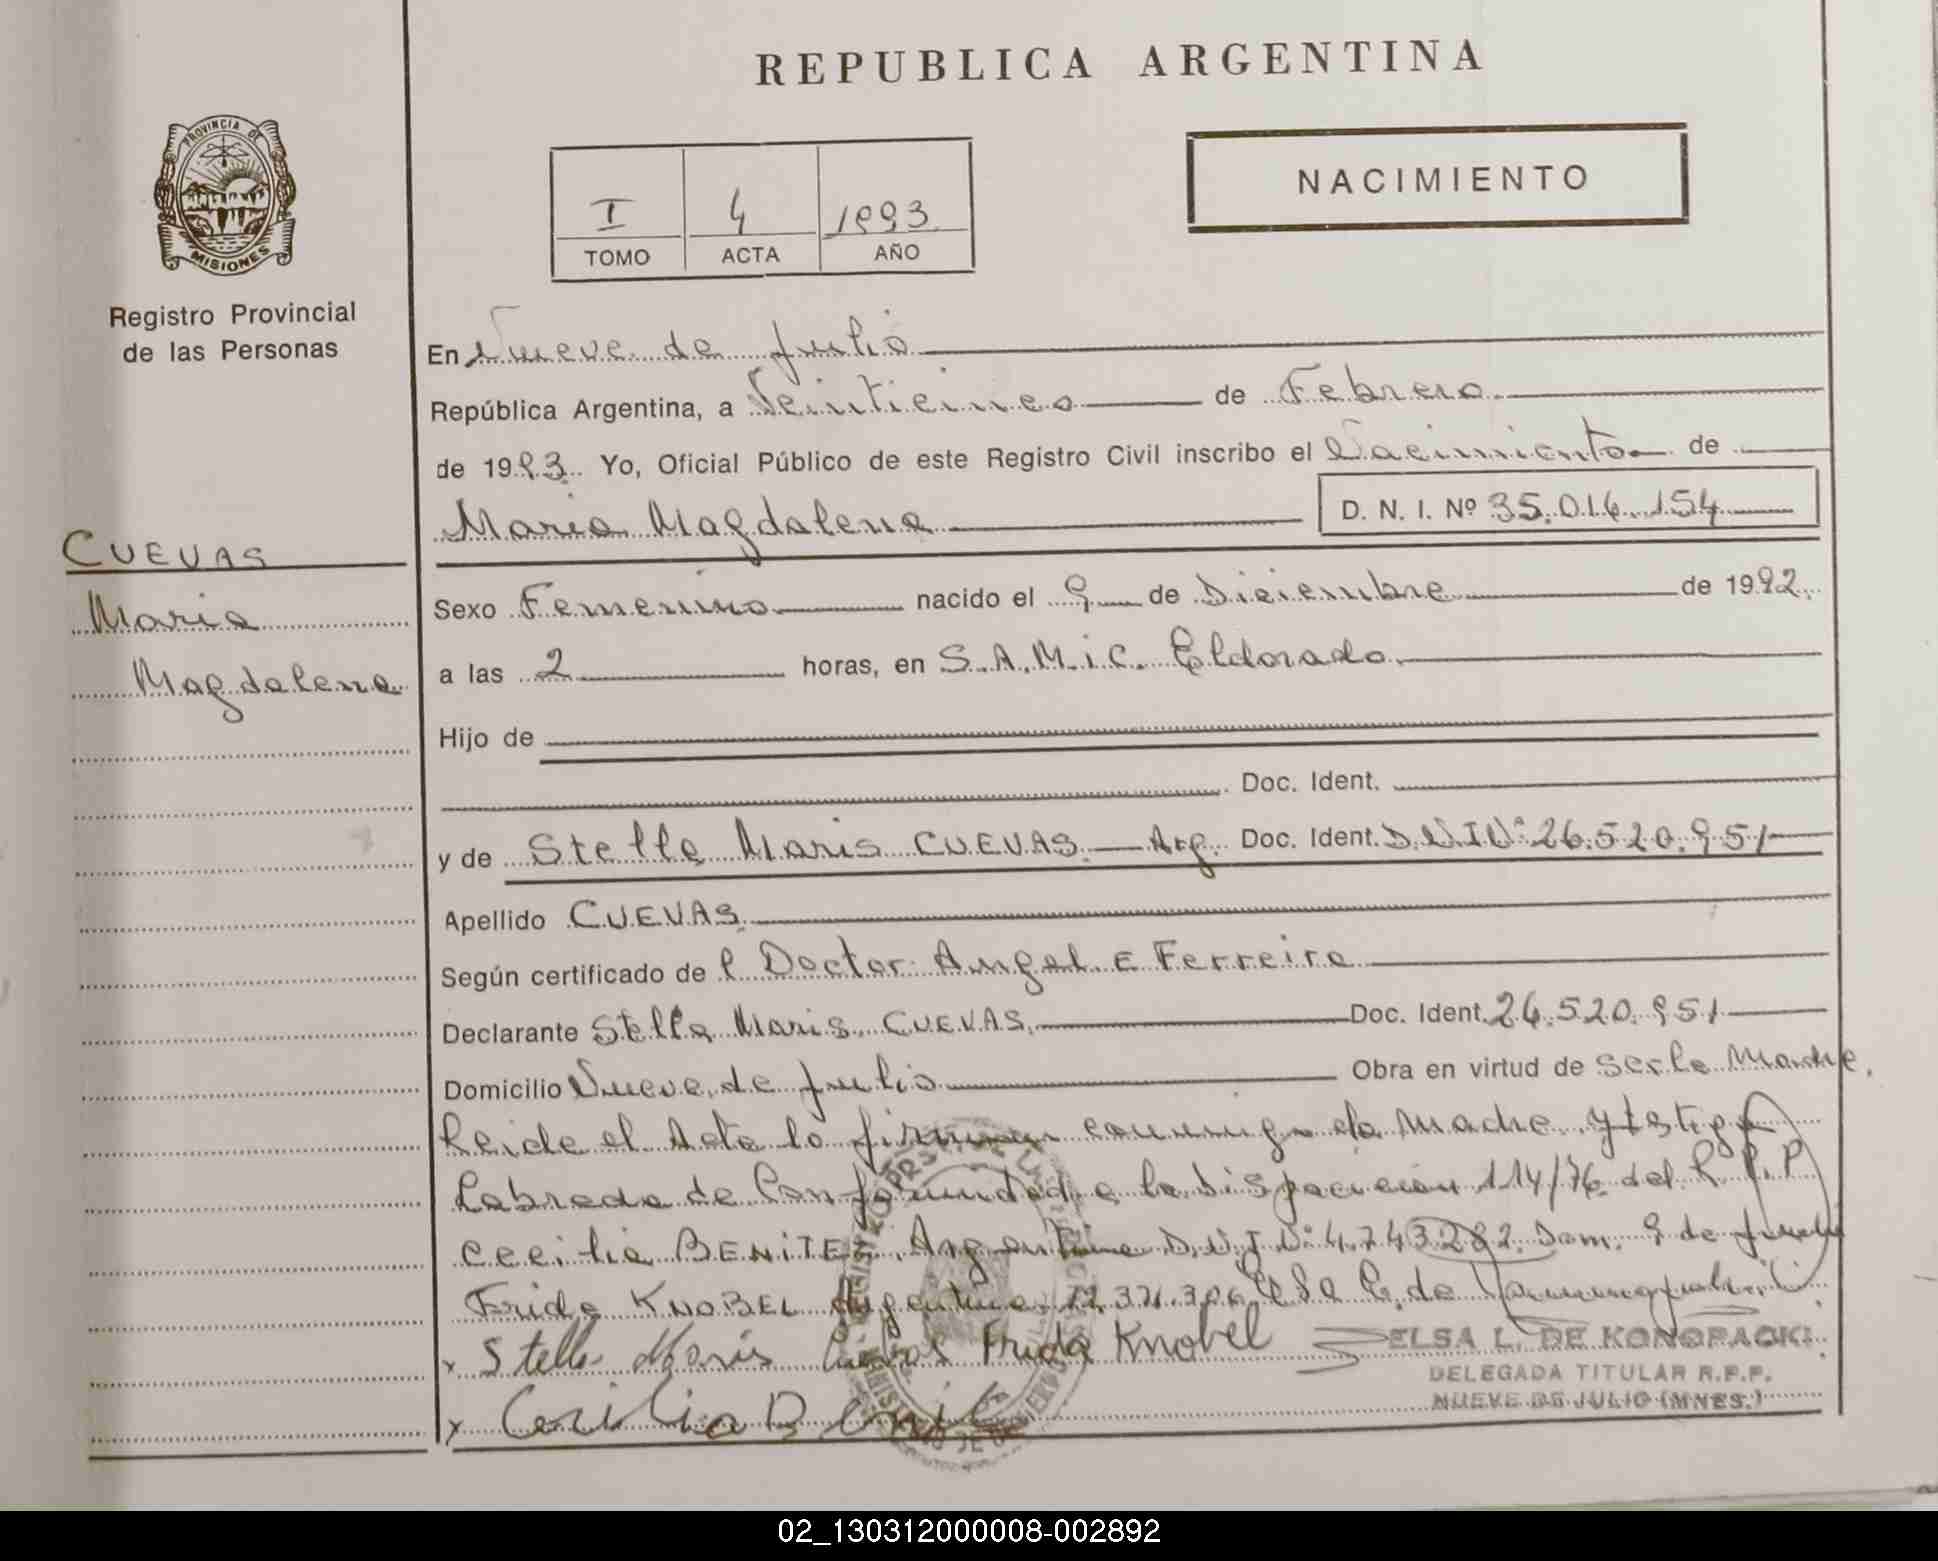 REPUBLICA ARGENTINA
PROVINCIA DE
MISIONES
Registro Provincial
de las Personas
I 4 1993
TOMO ACTA AÑO
NACIMIENTO
En Nueve de Julio
República Argentina, a Veinticinco de Febrero
de 1993. Yo, Oficial Público de este Registro Civil inscribo el Nacimiento de
Maria Magdalena D. N. I. Nº 35.014.154
CUEVAS
Maria
Magdalena
Sexo Femenino nacido el 9 de Diciembre de 1992.
a las 2 horas, en S.A.M.i.C. Eldorado
Hijo de
Doc. Ident.
y de Stella Maris CUEVAS Arg. Doc. Ident. D.N.I Nº 26.520.951
Apellido CUEVAS
Según certificado de l Doctor Angel E Ferreira
Declarante Stella Maris CUEVAS Doc. Ident. 26.520.951
Domicilio Nueve de Julio Obra en virtud de Serla Madre.
Leida el Acta la firman conmigo la Madre y Testigo
Labrada de Conformidad a la Disposicion 114/76 del R.P.P
Cecilia BENITEZ Argentina D.N.I Nº 4.743.282. Dom. 9 de Julio
Frida KNOBEL Argentina
Stella Maris Cuevas Frida Knobel
ELSA L. DE KONOPACKI
DELEGADA TITULAR R.P.P.
NUEVE DE JULIO (MNES.)
Cecilia Benitez
02_130312000008-002892